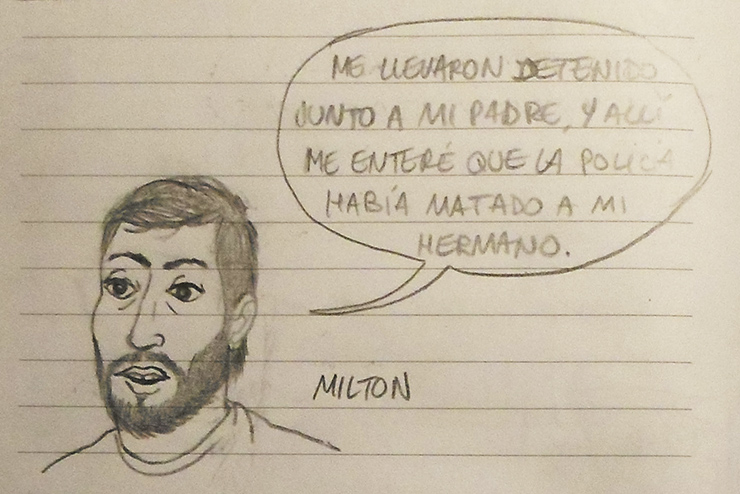 ME LLEVARON DETENIDO
JUNTO A MI PADRE, Y ALLÍ
ME ENTERÉ QUE LA POLICÍA
HABÍA MATADO A MI
HERMANO.
MILTON